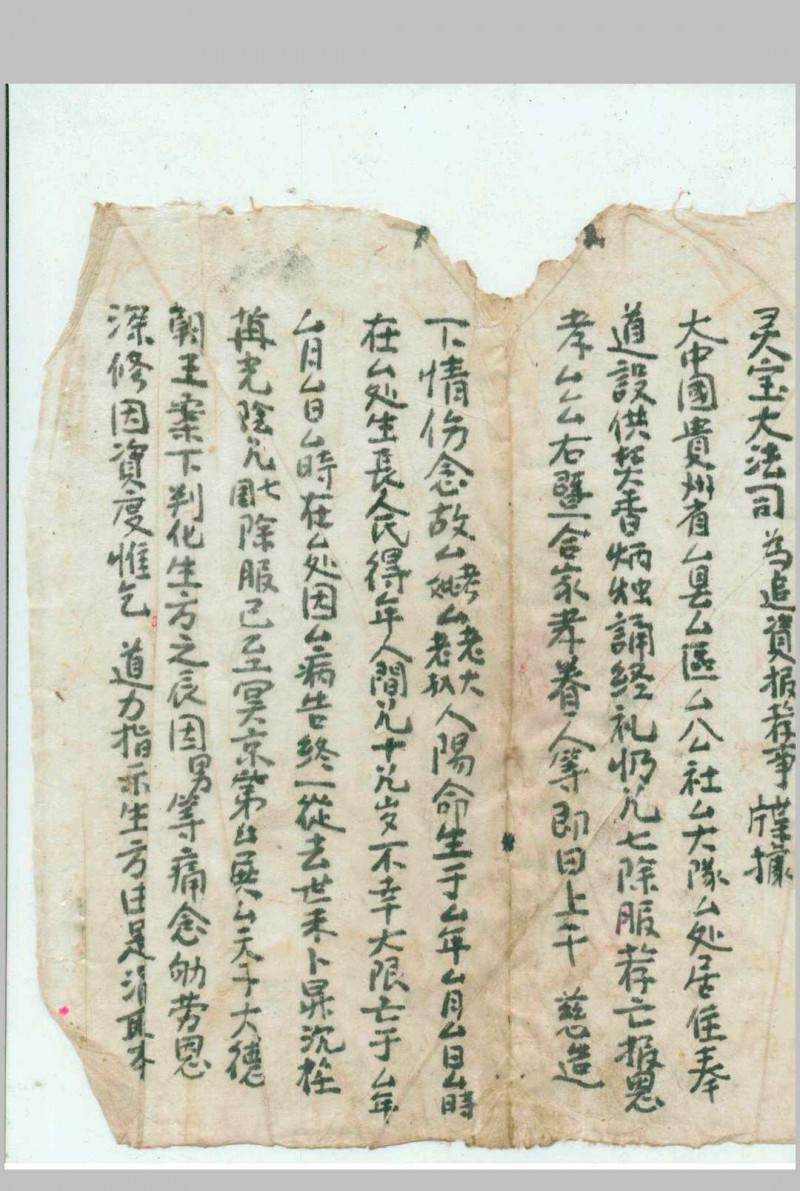 灵宝大法司 為追資报荐事 牒據
大中國貴州省厶县厶區厶公社厶大隊厶处居住奉
道設供焚香炳烛誦经礼忏凡七除服荐亡报恩
孝厶厶右暨一合家孝眷人等即日上干 慈造
下情伤念故厶考妣厶老大老孺人陽命生于厶年厶月厶日厶時
在厶处生長人民得年人間凡十凡岁不幸大限亡于厶年
厶月厶日厶時在厶处因厶病告終一從去世未卜昇沉
光陰凡七周除服已至冥京第厶殿厶天子大德
朝王案下判化生方之辰因男等痛念劬劳恩
深修因資度惟乞 道力指示生方由是涓取本